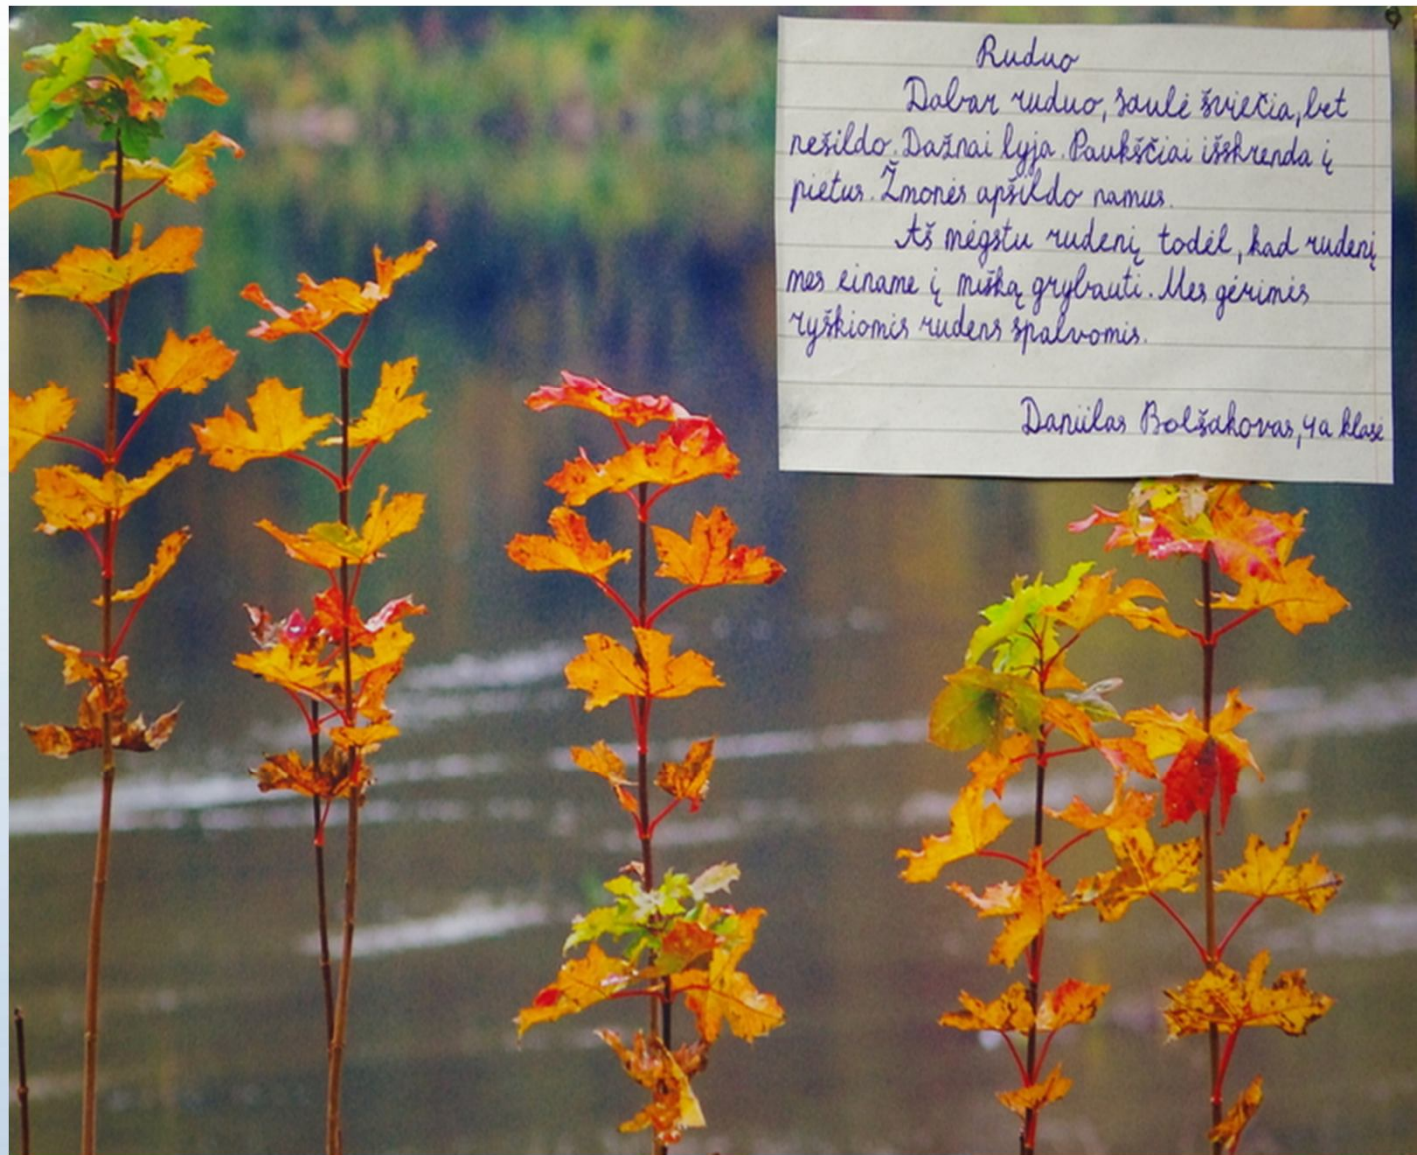 Ruduo
Dabar ruduo, saulė šviečia, bet
nešildo. Dažnai lyja. Paukščiai išskrenda į
pietus. Žmonės apšildo namus.
Aš mėgstu rudenį todėl, kad rudenį
mes einame į mišką grybauti. Mes gėrimės
ryškiomis rudens spalvomis.
Daniilas Bolšakovas, 4a klasė